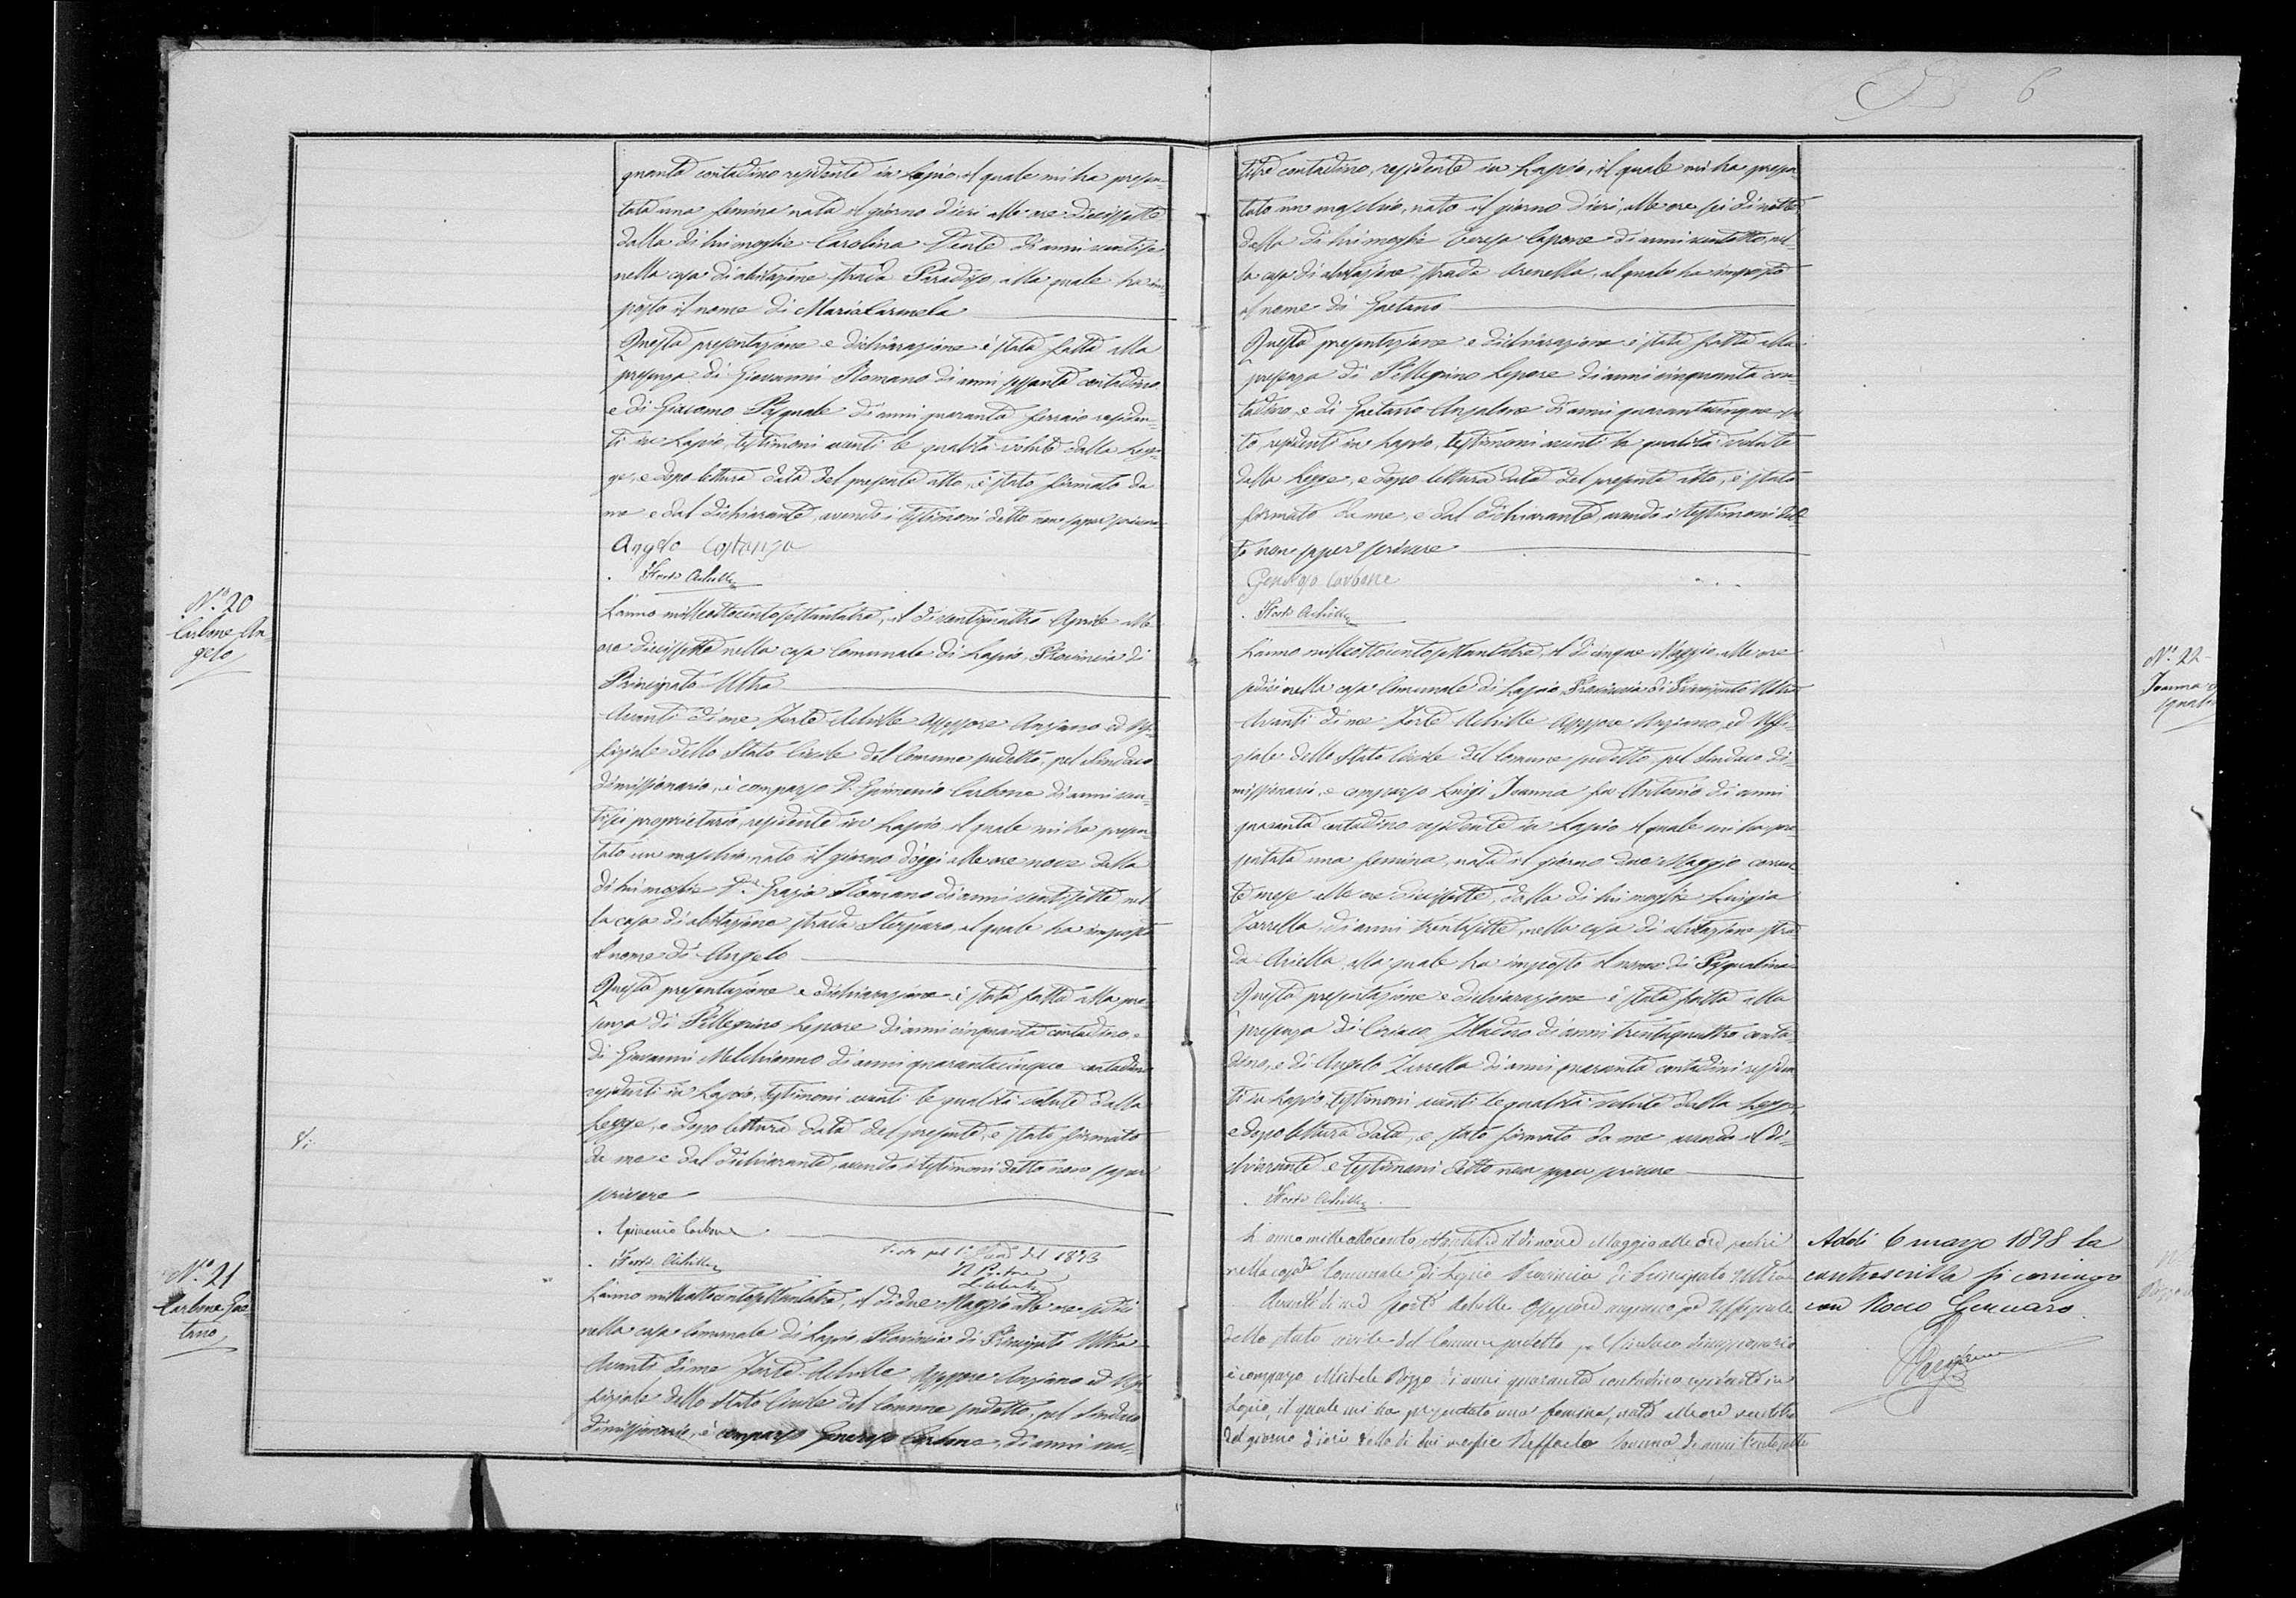 6
quanta contadino residente in Lapio, il quale mi ha presen-
tata una femina nata il giorno d'ieri alle ore diecissette
dalla di lui moglie Carolina Forte di anni ventisei
nella casa di abitazione strada Paradiso, alla quale ha im-
posto il nome di Maria Carmela
Questa presentazione e dichiarazione è stata fatta alla
presenza di Giovanni Romano di anni sessanta contadino
e di Giacomo Pasquale di anni quaranta ferraio residen-
ti in Lapio, testimoni aventi le qualità volute dalla Leg-
ge, e dopo lettura data del presente atto, è stato firmato da
me e dal dichiarante, avendo i testimoni detto non saper scrivere
Angelo Costanza
Forte Achille
N.° 20
Carbone An-
gelo
L'anno milleottocentosettantatre, il dì ventiquattro Aprile alle
ore diecissette nella casa Comunale di Lapio, Provincia di
Principato Ultra
Avanti di me Forte Achille Assessore Anziano ed Uf-
fiziale dello Stato Civile del Comune sudetto, pel Sindaco
dimissionario, è comparso D. Epimenio Carbone di anni ven-
tisei proprietario, residente in Lapio il quale mi ha presen-
tato un maschio nato il giorno d'oggi alle ore nove dalla
di lui moglie D.a Grazia Romano di anni ventisette nel-
la casa di abitazione strada Sterparo, al quale ha imposto
il nome di Angelo
Questa presentazione e dichiarazione è stata fatta alla pre-
senza di Pellegrino Lepore di anni cinquanta contadino e
di Giovanni Melchionno di anni quarantacinque contadino
residenti in Lapio, testimoni aventi le qualità volute dalla
Legge, e dopo lettura data del presente, è stato firmato
da me e dal dichiarante, avendo i testimoni detto non saper
scrivere
Epimenio Carbone
Forte Achille
1873
N.° 21
Carbone Gae-
tano
L'anno milleottocentosettantatre, il dì due Maggio alle ore sedici
nella casa Comunale di Lapio, Provincia di Principato Ultra
Avanti di me Forte Achille Assessore Anziano ed Uf-
fiziale dello Stato Civile del Comune sudetto, pel Sindaco
dimissionario, è comparso Generoso Carbone, di anni ven-
titre contadino, residente in Lapio, il quale mi ha presen
tato un maschio, nato il giorno d'ieri, alle ore sei di notte
dalla di lui moglie Teresa Capone di anni ventotto, nel-
la casa di abitazione, strada Arenella, al quale ha imposto
il nome di Gaetano
Questa presentazione e dichiarazione è stata fatta alla
presenza di Pellegrino Lepore di anni cinquanta con-
tadino, e di Gaetano Anzalone di anni quarantacinque sar-
to, residenti in Lapio, testimoni aventi le qualità volute
dalla Legge, e dopo lettura data del presente atto, è stato
firmato da me, e dal dichiarante, avendo i testimoni det
to non saper scrivere
Generoso Carbone
Forte Achille
N.° 22
Joanna
L'anno milleottocentosettantatre, il dì cinque Maggio, alle ore
sedici nella casa Comunale di Lapio, Provincia di Principato Ultra
Avanti di me Forte Achille Assessore Anziano, ed Uffi-
ziale dello Stato Civile del Comune sudetto, pel Sindaco di-
missionario, è comparso Luigi Joanna fu Antonio di anni
quaranta contadino residente in Lapio il quale mi ha pre-
sentata una femina, nata il giorno due Maggio corren
te mese alle ore diecisette, dalla di lui moglie Luigia
Zarrella, di anni trentasette, nella casa di abitazione stra-
da Ariella, alla quale ha imposto il nome di Pasqualina
Questa presentazione e dichiarazione è stata fatta alla
presenza di Ciriaco di anni trentaquattro conta-
dino, e di Angelo Zarrella di anni quaranta contadini residen
ti in Lapio testimoni aventi le qualità volute dalla Legge,
e dopo lettura data, è stato firmato da me avendo il di-
chiarante e testimoni detto non saper scrivere
Forte Achille
L'anno milleottocento settantatre il dì nove Maggio alle ore sedici
nella casa Comunale di Lapio Provincia di Principato Ultra
Avanti di me Forte Achille Assessore anziano, ed Uffiziale
dello stato civile del Comune sudetto pel Sindaco dimissionario
è comparso Michele Rizzo di anni quaranta contadino residente in
Lapio, il quale mi ha presentato una femina, nata alle ore ventitre
del giorno d'ieri dalla di lui moglie Raffaela di anni trentasette
Addì 6 marzo 1898 la
controscritta si coniugò
con Rocco Gennaro.